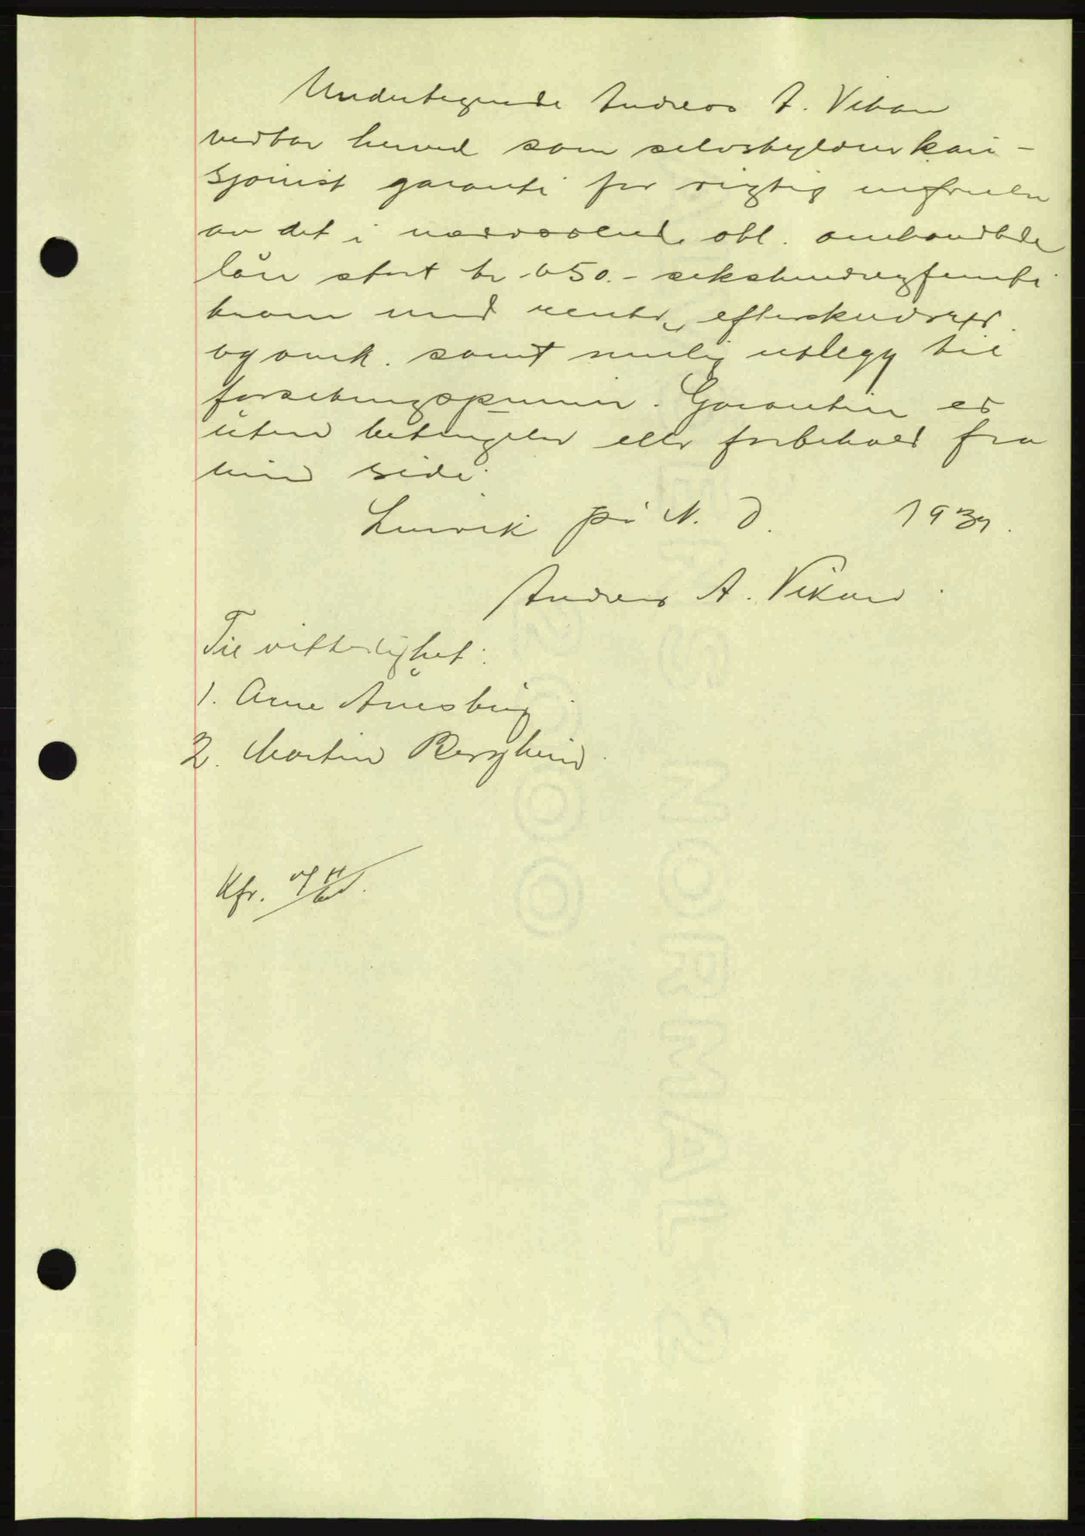 Undertegnede Andreas A. Vikan
vedtar herved som selvskyldnerkau-
sjonist garanti for rigtig innfrielse
av det i nærværende obl. omhandlede
lån stort kr 650.- sekshundreogfemti
kroner med renter, efterskuds
og omk. samt mulig utlegg til
forsikringspremier. Garantien er
uten betingelser eller forbehold fra
min side.
på N. D. 1939.
Andreas A. Vikan
Til vitterlighet:
1. Arne
2. Martin Bergheim
Kfr.
NORMAL 2